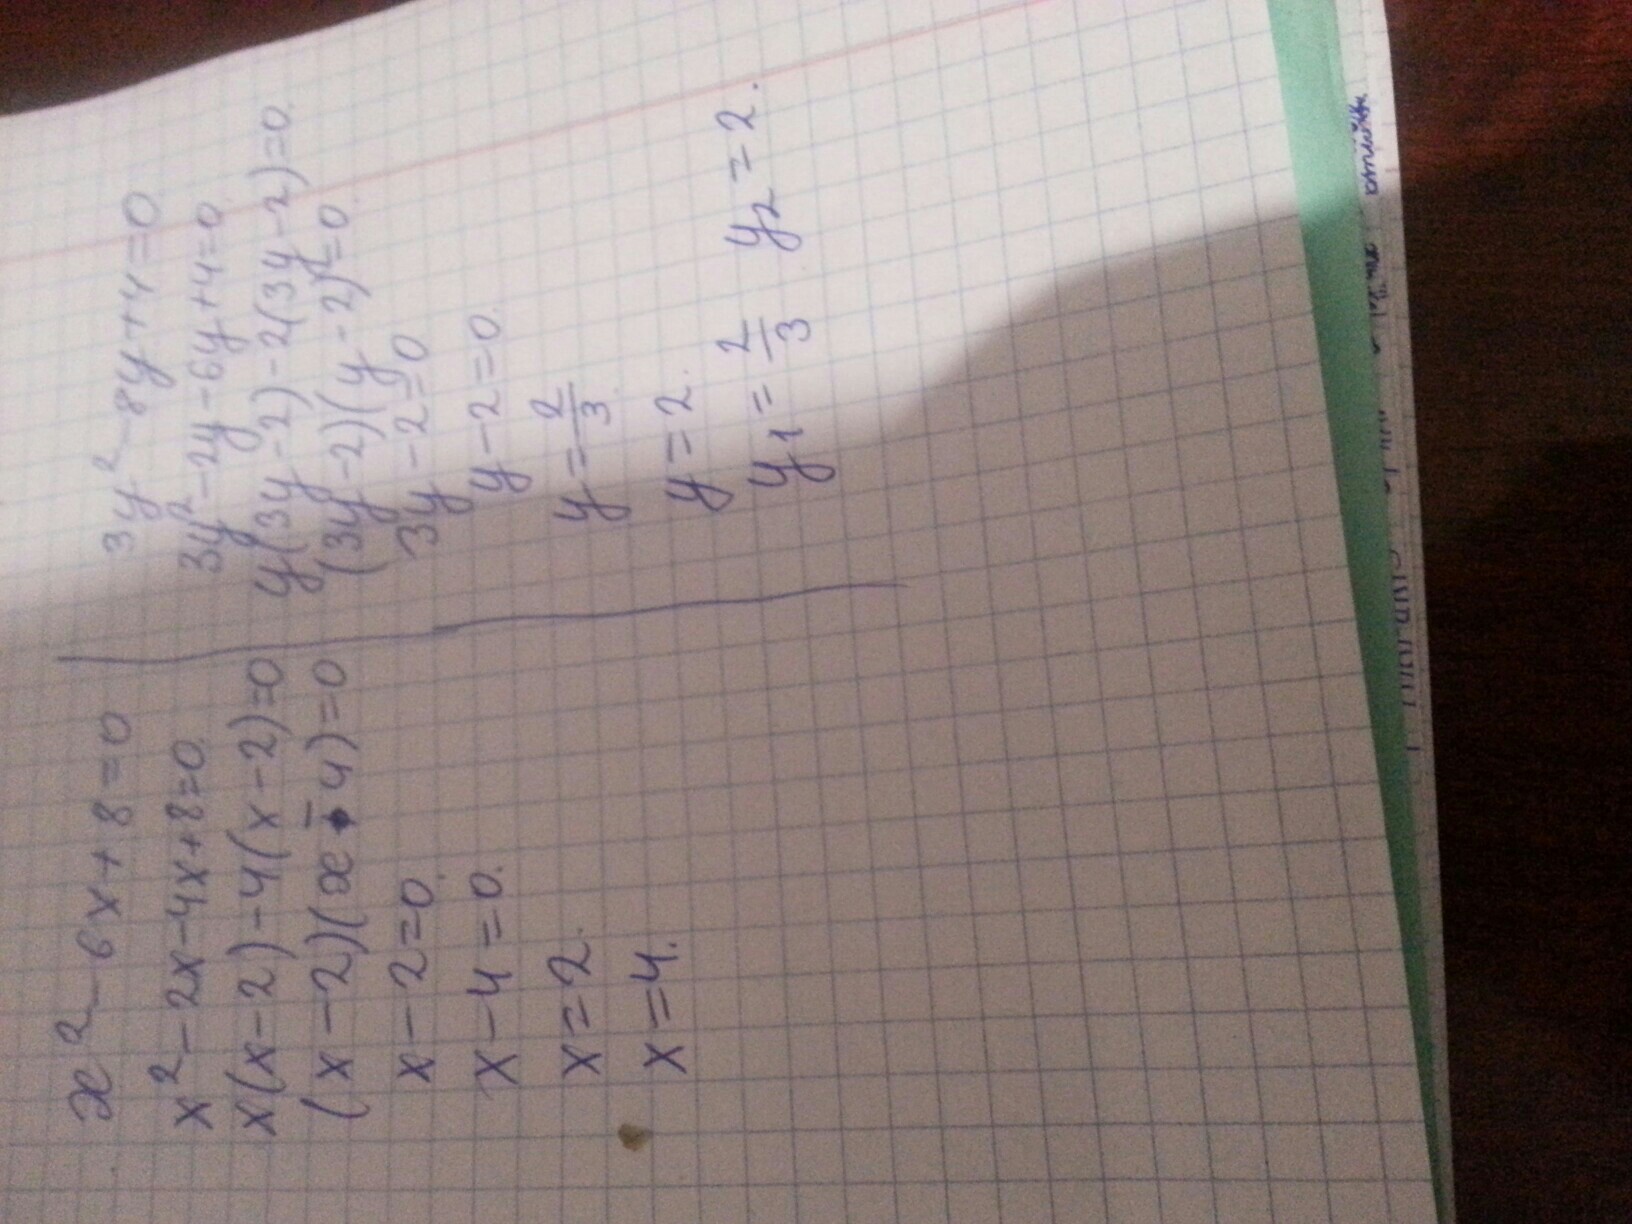 x² - 6x + 8 = 0
x² - 2x - 4x + 8 = 0.
x(x - 2) - 4(x - 2) = 0
(x - 2)(x - 4) = 0
x - 2 = 0.
x - 4 = 0.
x = 2.
x = 4.
3y² - 8y + 4 = 0
3y² - 2y - 6y + 4 = 0.
y(3y - 2) - 2(3y - 2) = 0.
(3y - 2)(y - 2) = 0.
3y - 2 = 0
y - 2 = 0.
y = 2/3.
y = 2.
y₁ = 2/3 y₂ = 2.